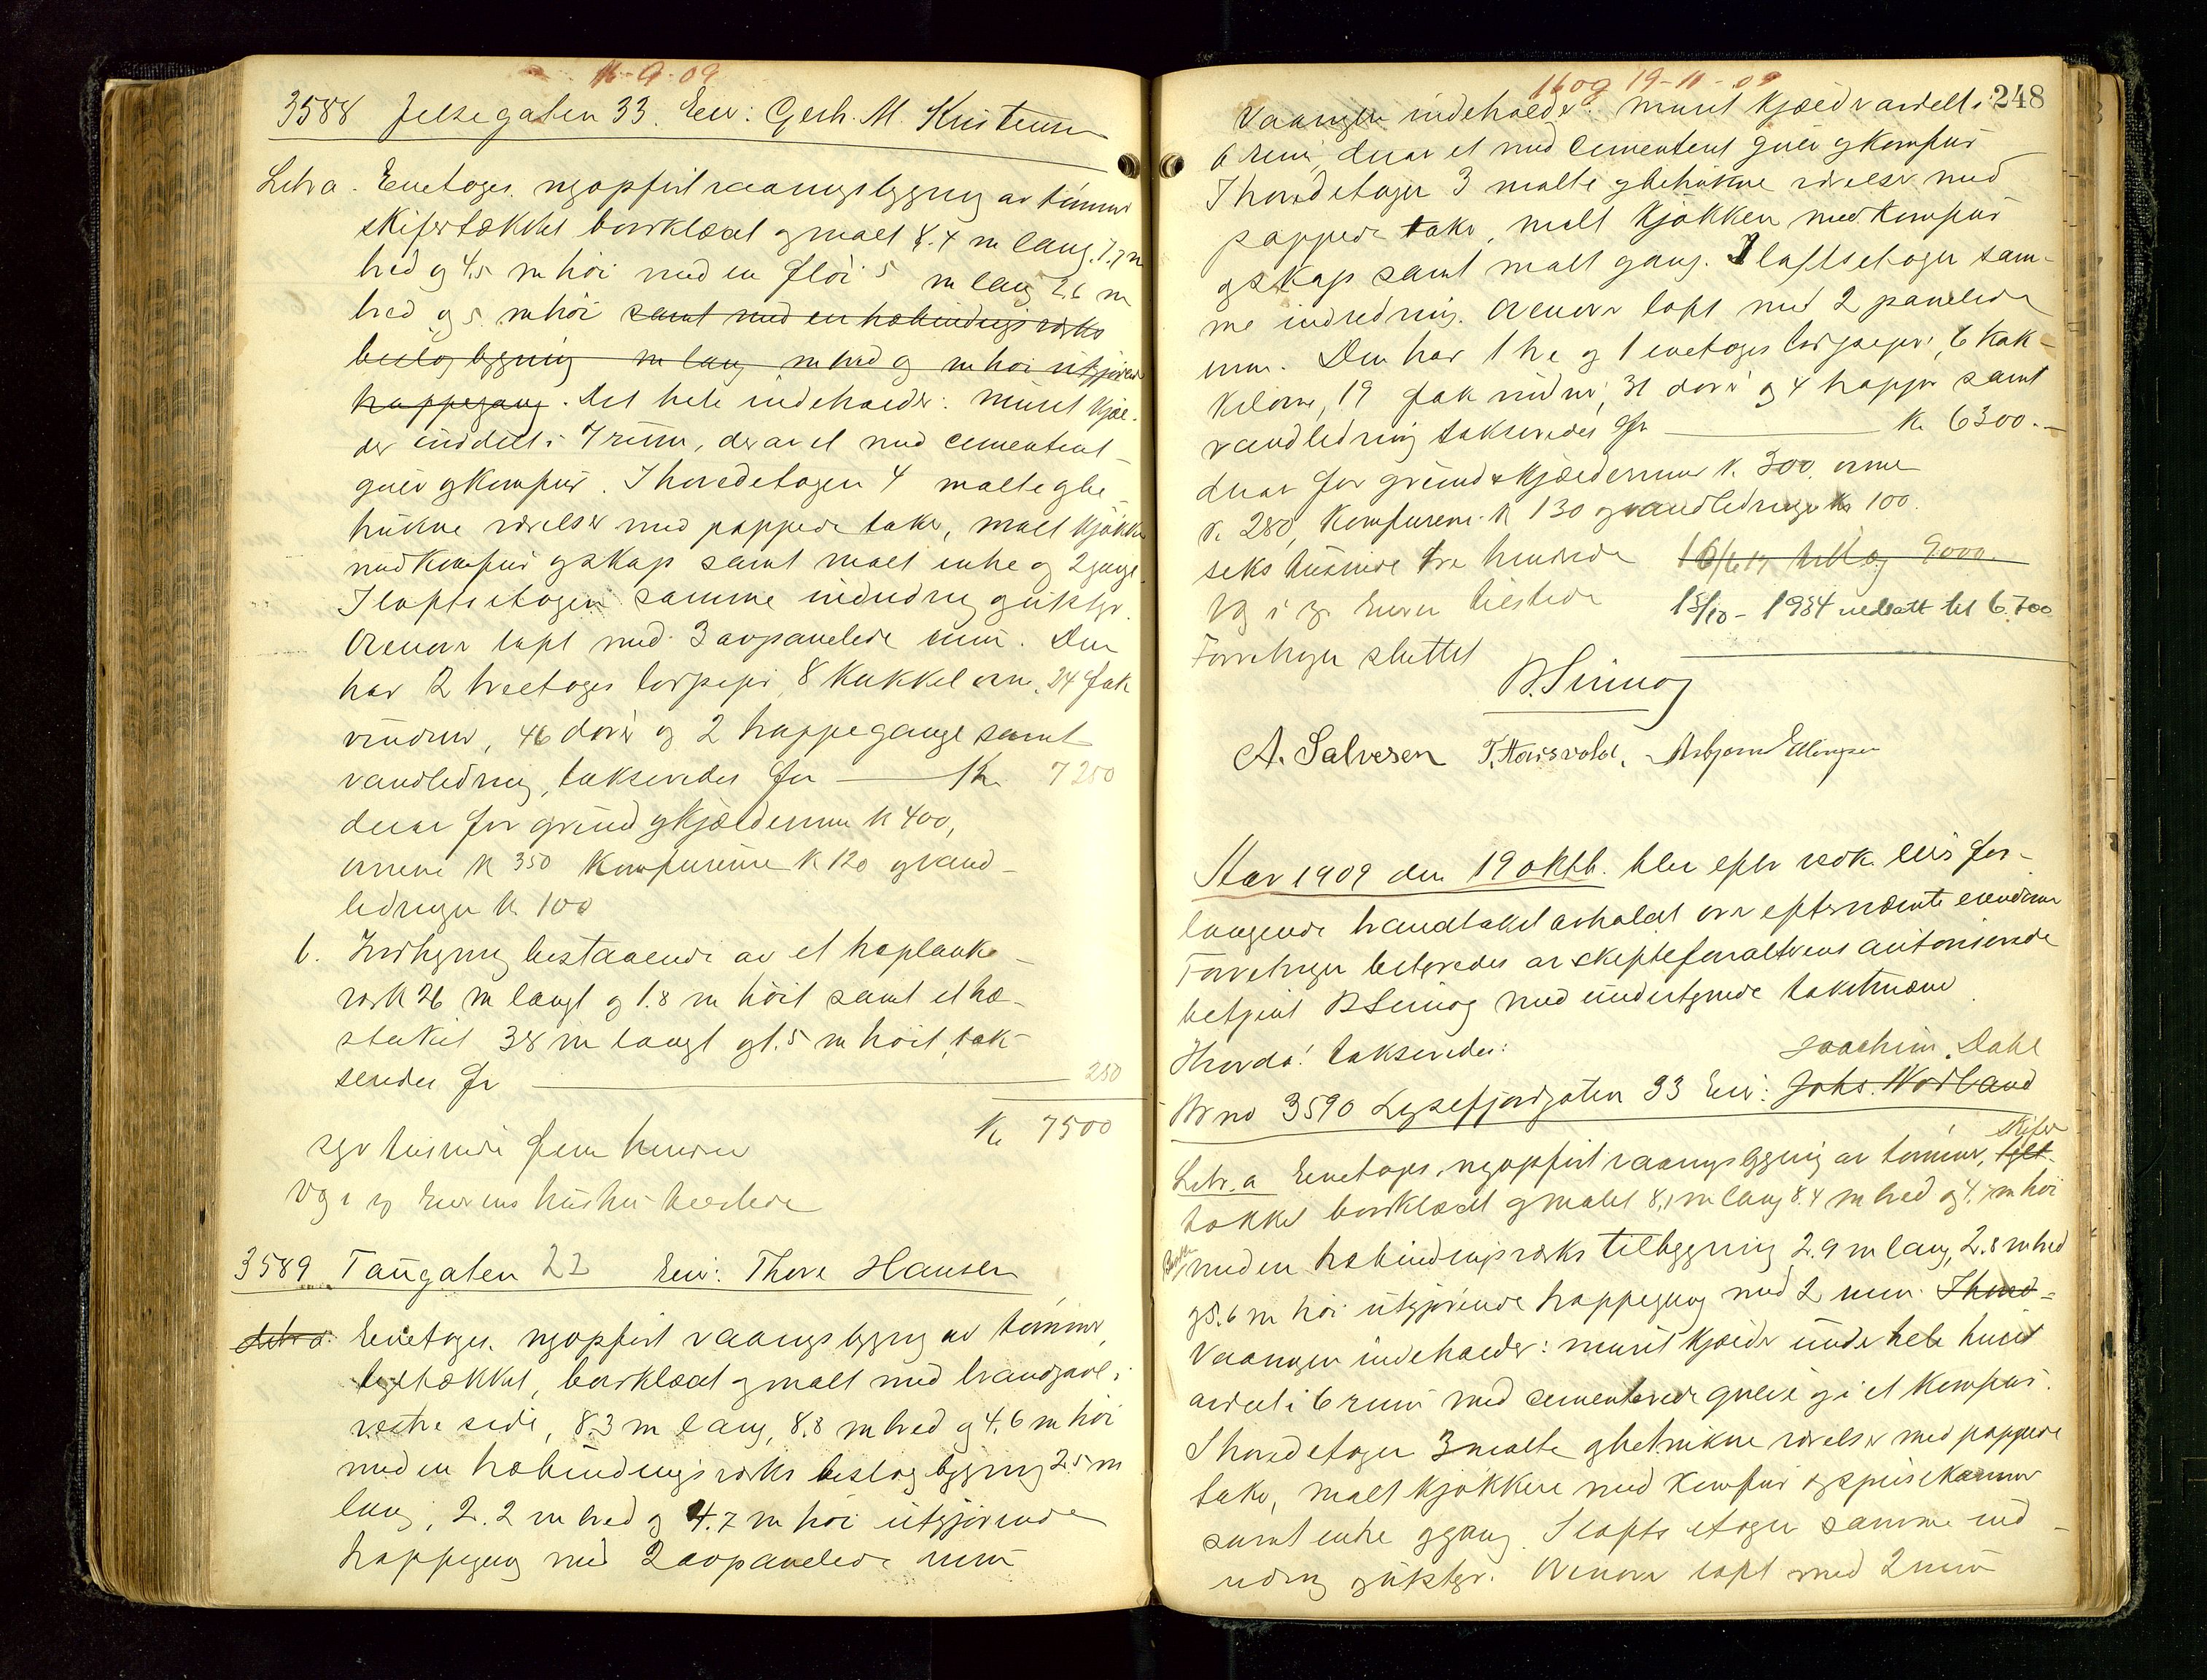 16-9-09
3588 Jelsegaten 33. Eier: Gerh. M. Kristensen
Litra a. Enetages nyopført vaaningsbygning av tømmer
skifertækket bordklædt og malt 8.4 m lang, 7.7 m
bred og 4.5 m höi med en flöi 5 m lang 2.6 m
bred og 5 m höi samt med en halvbindingsverks
beslag bygning m lang m bred og m höi utgjörende
trappegang. Det hele indeholder: muret kjæl-
der inddelt i 7 rum, derav et med cementert
gulv og komfur. I hovedetagen 4 malte og be-
trukne værelser med pappede take, malt kjøkken
med komfur og skap samt malt entre og 2 gange.
I loftsetagen samme indredning og utstyr.
Ovenover loft med 3 avpanelede rum. Den
har 2 treetages lorpiper, 8 kakkelovne, 24 fak
vinduer, 46 dører og 2 trappegange samt
vandledning, takseredes for Kr. 7250
derav for grund og kjældermur k 400,
ovnene k 350 komfurerne k 120 og vand-
ledningen k. 100
b. Indhegning bestaaende av et haplanke-
verk 26 m langt og 1.8 m höit samt et ha-
stakit 38 m langt og 1.5 m höit, tak-
seredes for 250
Kr 7500
syv tusinde fem hundre
Vg i 3. Eierens hustru tilstede
3589 Taugaten 22 Eier: Thore Hansen
Litr a: Enetages nyopført vaaningsbygning av tømmer,
teglstækket, bordklædt og malt med brandgavl i
vestre side, 8.3 m lang, 8.8 m bred og 4.6 m höi
med en halvbindingsverks beslag bygning 2.5 m
lang, 2.2 m bred og 4.7 m höi utgjörende
trappegang med 2 avpanelede rum
16 og 19-11-09
248
Vaaningen indeholder: muret kjælder avdelt i
6 rum, derav et med cementert gulv og komfur
I hovedetagen 3 malte og betrukne værelser med
pappede take, malt kjökken med komfur
og skap samt malt gang. I loftsetagen sam-
me indredning. Ovenover loft med 2 panelede
rum. Den har 1 tre og 1 enetages lorpiper, 6 kak-
kelovne, 19 fak vinduer, 31 dører og 4 trapper samt
vandledning takseredes for k. 6300.-
derav for grund & kjældermur k. 300 ovne
k. 280, komfurerne k 130 og vandledningen kr 100.
seks tusinde tre hundrede 16/6 17 tillæg 9000.
Vg i 3. Eieren tilstede 15/10 - 1934 nedsatt til 6.700
Forretningen sluttet
B. Simog
A. Salvesen T. Hausvold. Asbjørn Ellingsen
Aar 1909 den 19 oktb. blev efter vedk. eiers for-
langende brandtakst avholdt over efternævnte eiendomme
Forretningen bestyredes av skifteforvalterens autoriserede
betjent B Simog med undertegnede takstmænd
Hvorda: takseredes:
Joachim Dahl
Br no 3590 Lysefjordgaten 33 Eier: Johs. Nordland
Skifer
Litr. a Enetages nyopført vaaningsbygning av tømmer, tegl-
tækket bordklædt og malet 8,1 m lang 8.4 m bred og 4.7 m höi
med en halvbindingsverks tilbygning 2.9 m lang, 2.8 m bred
og 5.6 m höi utgjörende trappegang med 2 rum. I hoved-
Vaaningen indeholder: muret kjælder under hele huset
avdelt i 6 rum med cementerede gulve og i et komfur.
I hovedetagen 3 malte og betrukne værelser med pappede
take, malt kjökken med komfur og spisekammer
samt entre og gang. I loftsetagen samme ind-
redning og utstyr. Ovenover loft med 2 rum